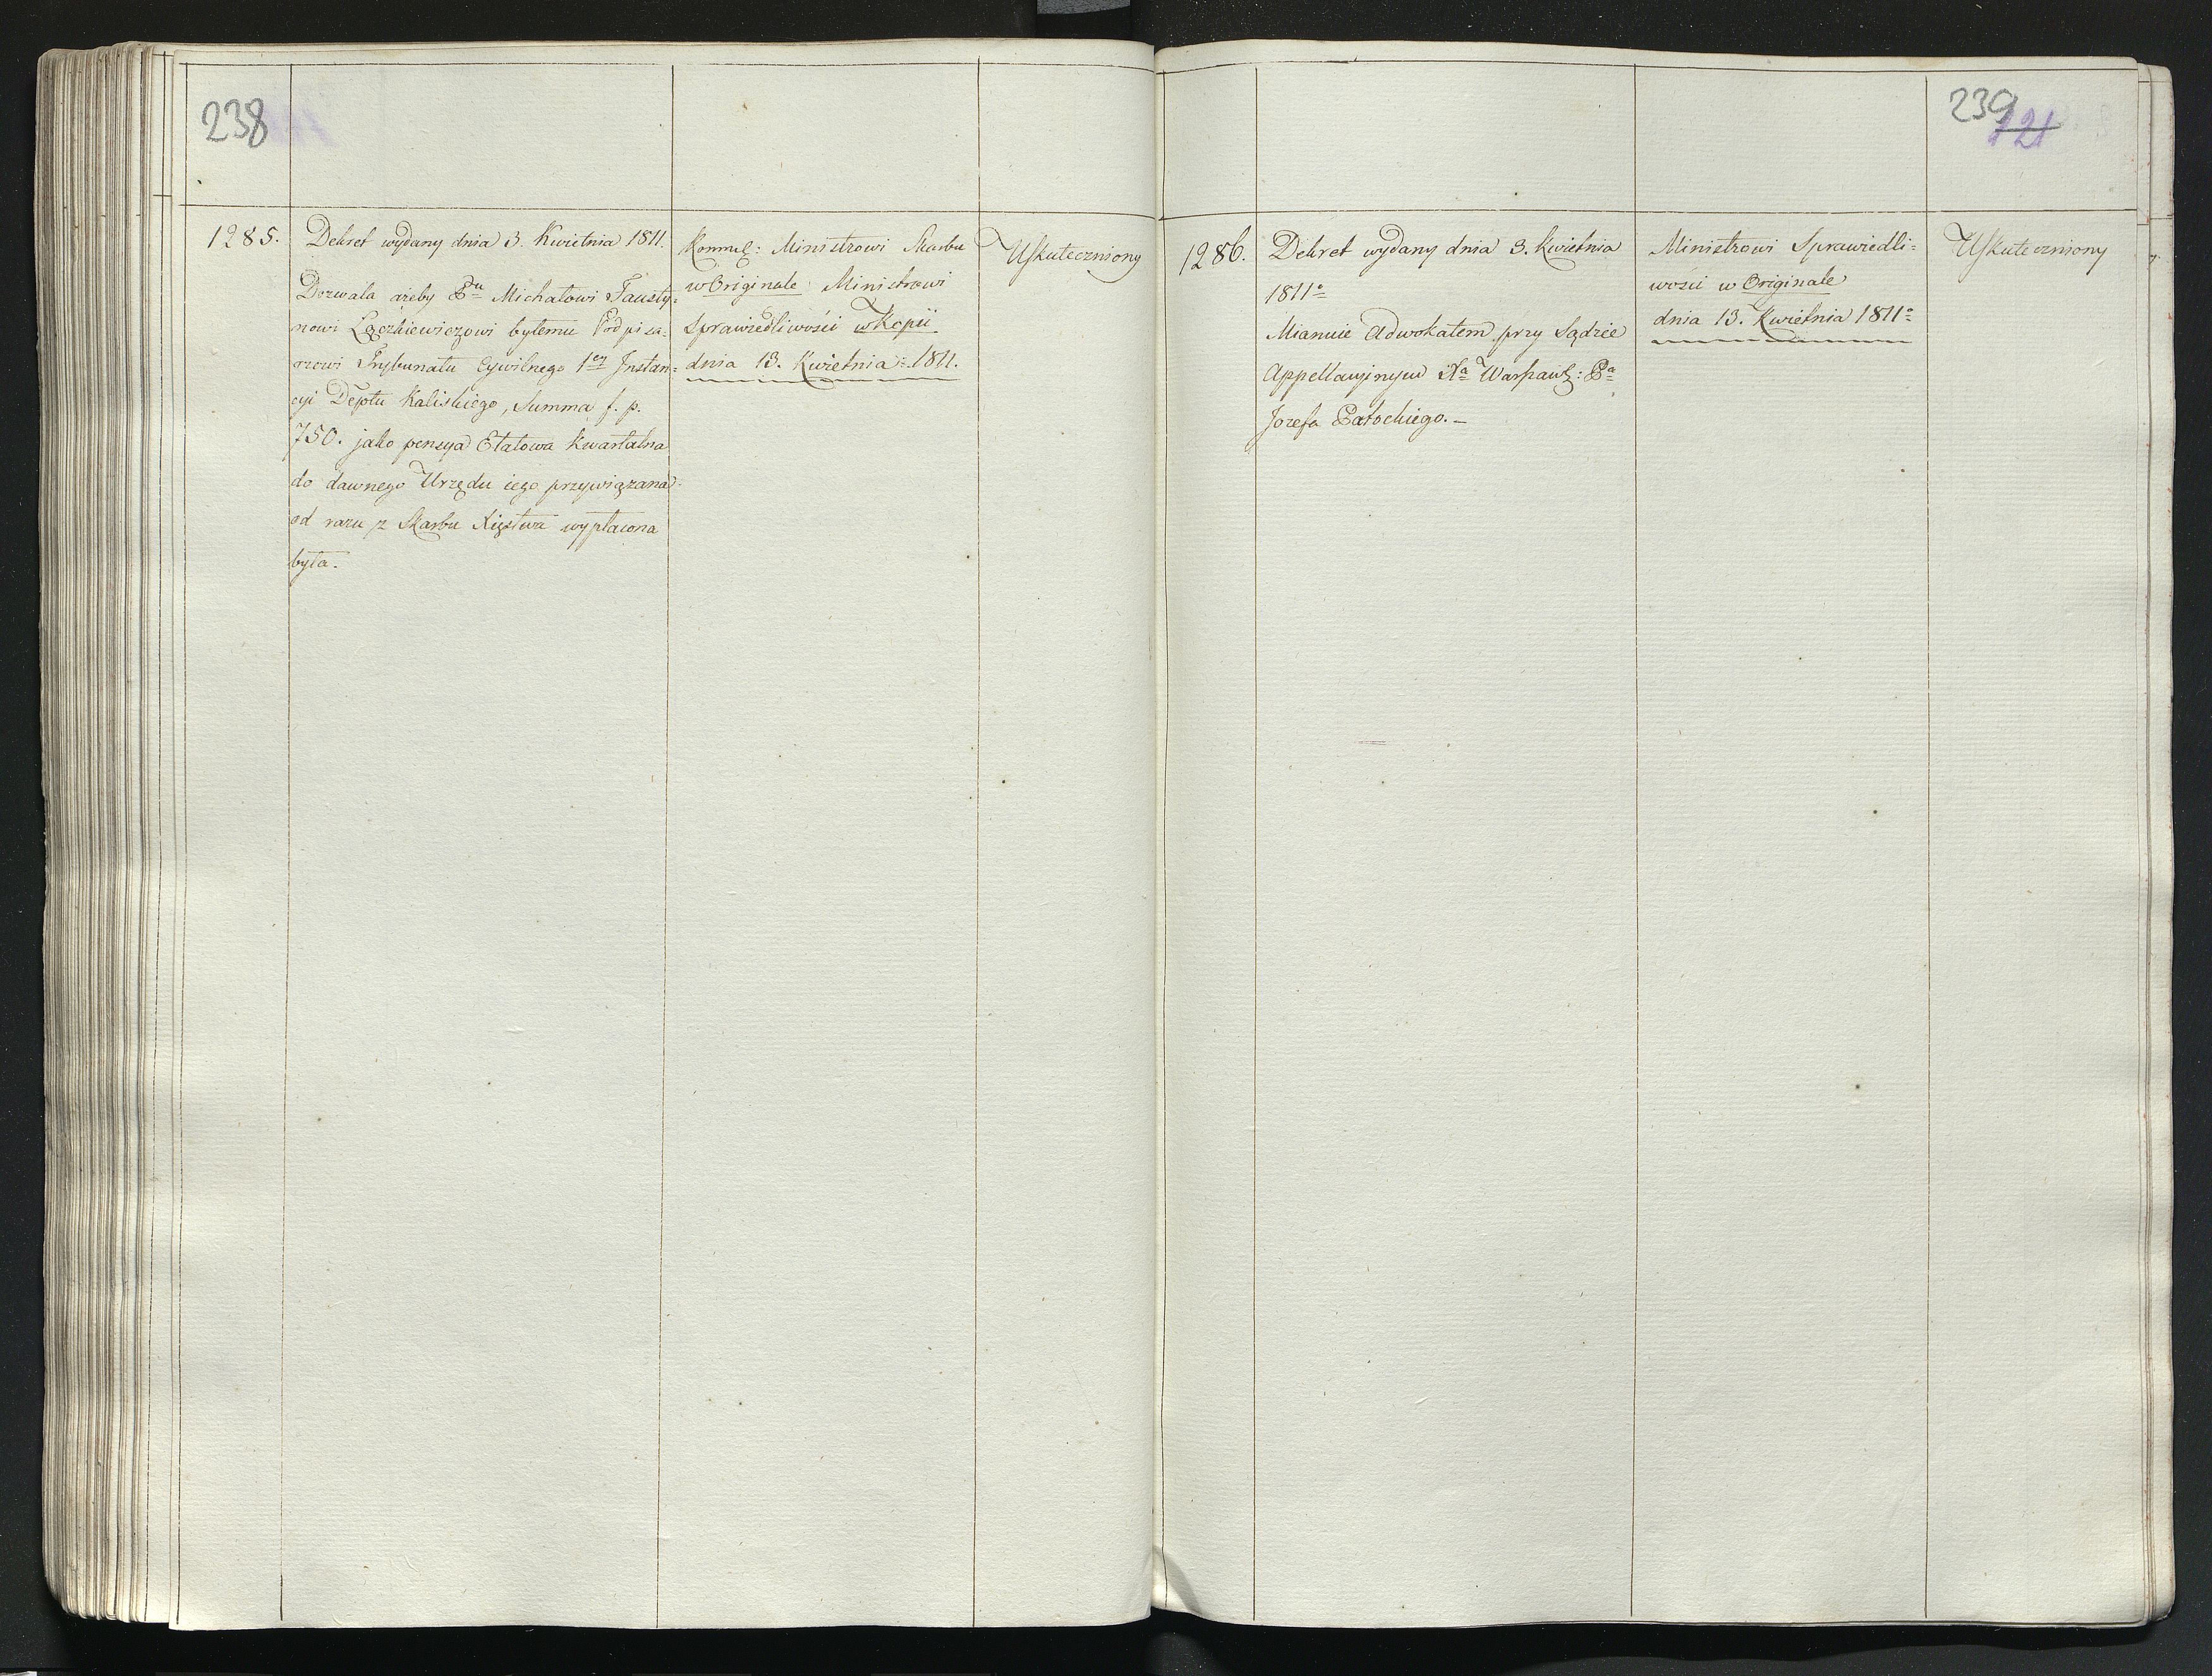 238
1285.
Dekret wydany dnia 3. Kwietnia 1811.
Dozwala ażeby Pu Michałowi Fausty-
nowi Łączkiewiczowi byłemu Podpisa-
rzowi Trybunału Cywilnego 1ey Instan-
cyi Deptu Kaliskiego, Summa f. p.
750. jako pensya Etatowa kwartalna
do dawnego Urzędu iego przywiązana
od razu z Skarbu Xięstwa wypłacona
była.
Ministrowi Skarbu
w Originale Ministrowi
Sprawiedliwości w Kopii
dnia 13. Kwietnia 1811.
Uskuteczniony
239
121
1286.
Dekret wydany dnia 3. Kwietnia
1811o
Mianuie Adwokatem przy Sądzie
Appellacyinym Xa Warszaws: Pa
Jozefa Patockiego. –
Ministrowi Sprawiedli-
wości w Originale
dnia 13. Kwietnia 1811o
Uskuteczniony